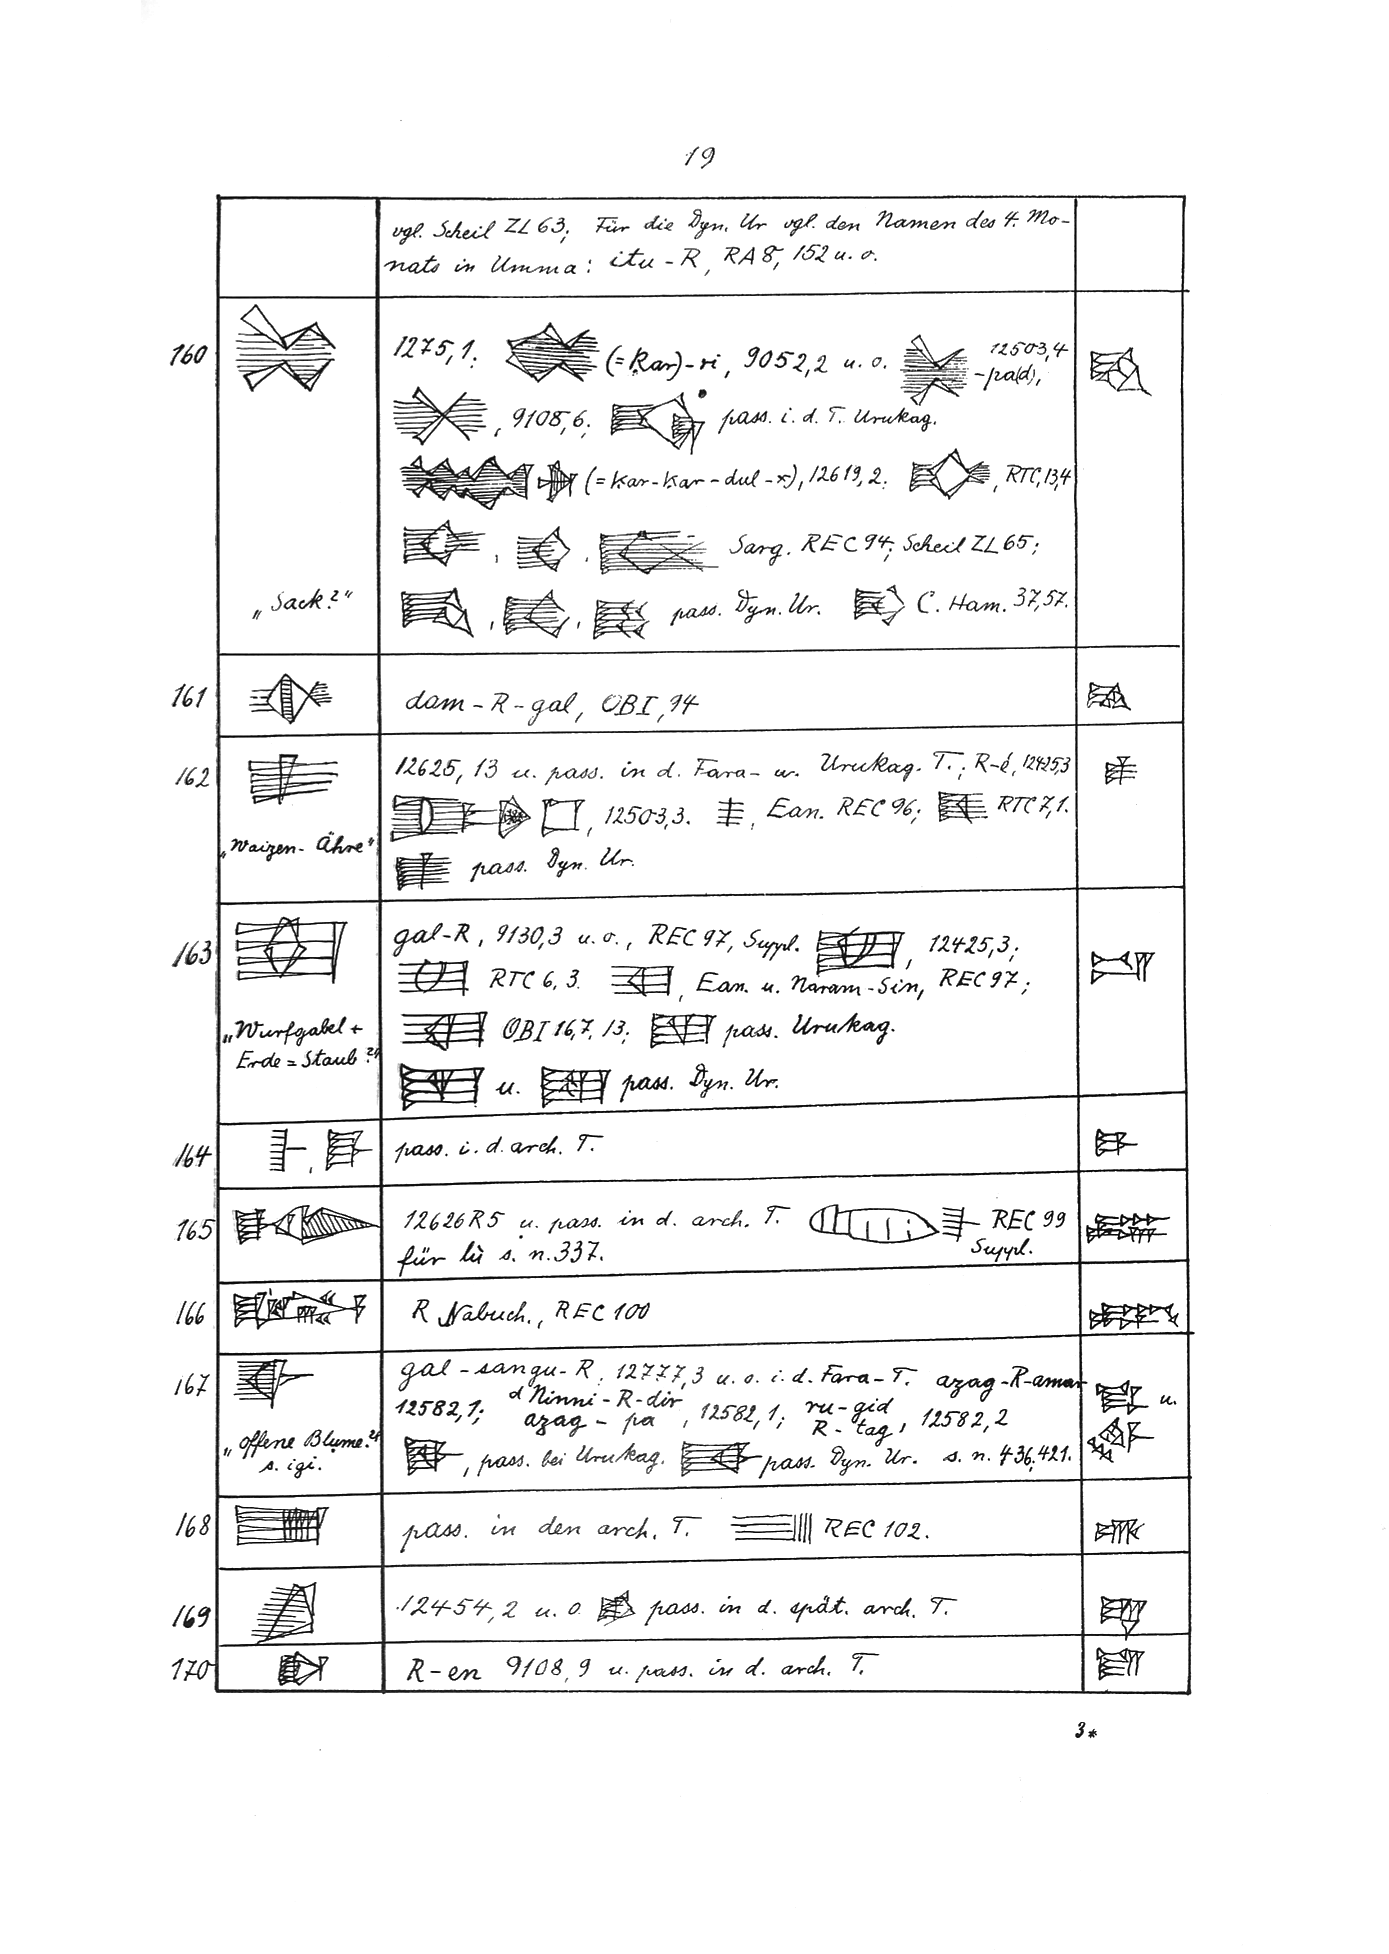 19
vgl. Scheil ZL 63; Für die Dyn. Ur vgl. den Namen des 4. Mo-
nats in Umma: itu - R, RA 8, 152 u. o.
160
1275,1; (= Kar)-ri, 9052,2 u. o. 12503,4
-pa(d),
, 9108,6; pass. i. d. T. Urukag.
(= Kar-Kar-dul-x), 12619,2. , RTC, 13,4
, , Sarg. REC 94; Scheil ZL 65;
„Sack?“
, , pass. Dyn. Ur. C. Ham. 37,57.
161
dam - R - gal, OBI, 14
162
12625, 13 u. pass. in d. Fara- u. Urukag. T.; R-é, 12425,3
, 12503,3. , Ean. REC 96; RTC 7,1.
„Waizen-Ähre“
pass. Dyn. Ur.
163
gal-R, 9130,3 u. o., REC 97, Suppl. , 12425,3;
RTC 6,3. , Ean. u. Naram-Sin, REC 97;
„Wurfgabel +
Erde = Staub?“
OBI 16,7,13; pass. Urukag.
u. pass. Dyn. Ur.
164
,
pass. i. d. arch. T.
165
12626 R 5 u. pass. in d. arch. T. REC 99
Suppl.
für lù s. n. 337.
166
R Nabuch., REC 100
167
gal-sangu-R, 12777,3 u. o. i. d. Fara-T. azag-R-amar
12582,1; d Ninni-R-dir
azag - pa , 12582,1; ru-gid
R - tag , 12582,2
u.
„offene Blume?“
s. igi.
, pass. bei Urukag. pass. Dyn. Ur. s. n. 436,421.
168
pass. in den arch. T. REC 102.
169
12454,2 u. o. pass. in d. spät. arch. T.
170
R-en 9108,9 u. pass. in d. arch. T.
3*